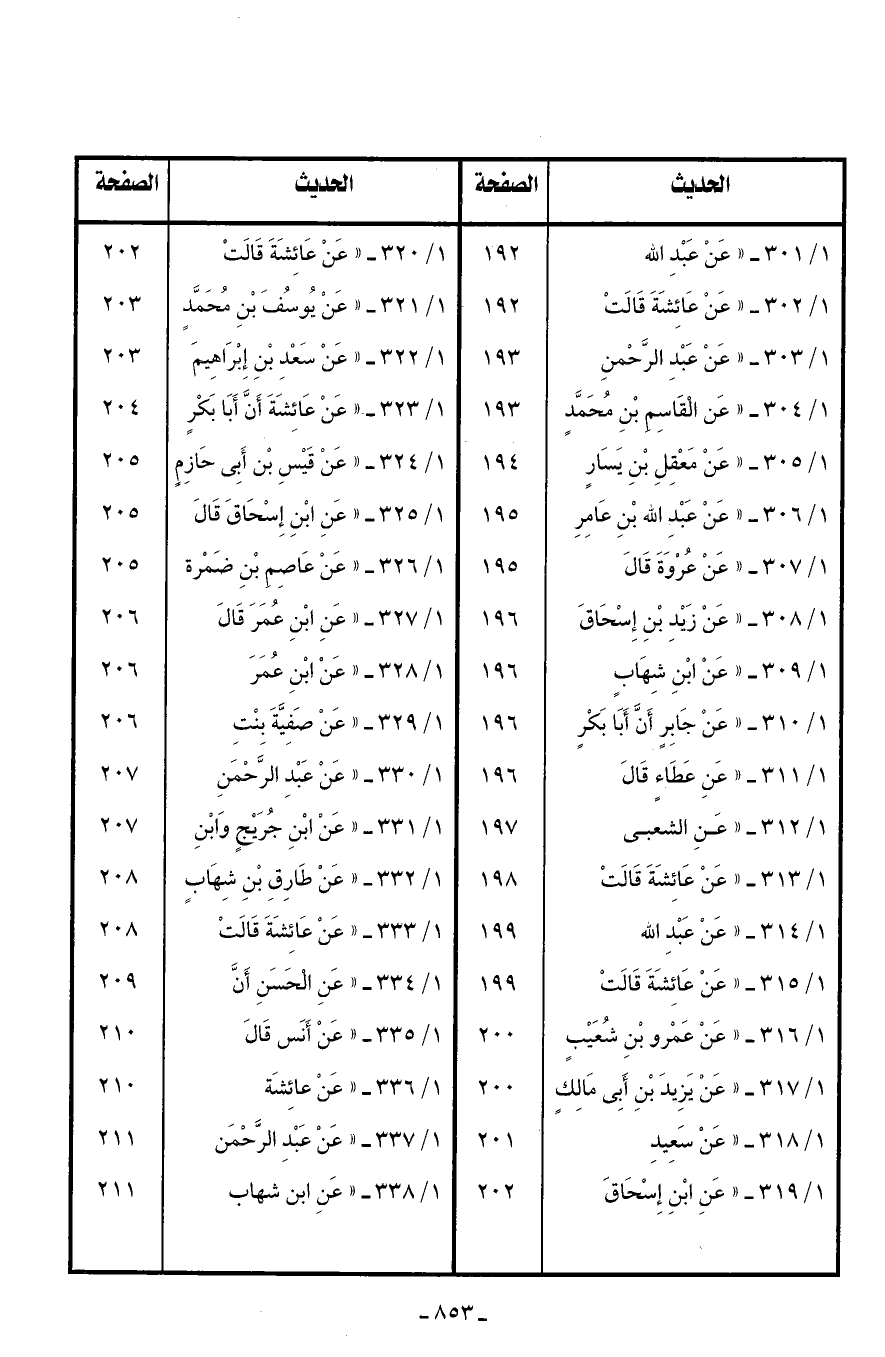 الحديث الصفحة الحديث الصفحة
١/ ٣٠١ ـ « عَنْ عَبْدِ الله ١٩٢ ١/ ٣٢٠ ـ « عَنْ عَائِشَةَ قَالَتْ ٢٠٢
١/ ٣٠٢ ـ « عَنْ عَائِشَةَ قَالَتْ ١٩٢ ١/ ٣٢١ ـ « عَنْ يُوسُفَ بْنِ مُحَمَّدٍ ٢٠٣
١/ ٣٠٣ ـ « عَنْ عَبْدِ الرَّحْمنِ ١٩٣ ١/ ٣٢٢ ـ « عَنْ سَعْدِ بْنِ إِبْرَاهِيمَ ٢٠٣
١/ ٣٠٤ ـ « عَنِ الْقَاسِمِ بْنِ مُحَمَّدٍ ١٩٣ ١/ ٣٢٣ ـ « عَنْ عَائِشَةَ أَنَّ أَبَا بَكْرٍ ٢٠٤
١/ ٣٠٥ ـ « عَنْ مَعْقِلِ بْنِ يَسَارٍ ١٩٤ ١/ ٣٢٤ ـ « عَنْ قَيْسِ بْنِ أَبِى حَازِمٍ ٢٠٥
١/ ٣٠٦ ـ « عَنْ عَبْدِ الله بْنِ عَامِرِ ١٩٥ ١/ ٣٢٥ ـ « عَنِ ابْنِ إِسْحَاقَ قَالَ ٢٠٥
١/ ٣٠٧ ـ « عَنْ عُرْوَةَ قَالَ ١٩٥ ١/ ٣٢٦ ـ « عَنْ عَاصِمِ بْنِ ضَمْرة ٢٠٥
١/ ٣٠٨ ـ « عَنْ زَيْدِ بْنِ إِسْحَاقَ ١٩٦ ١/ ٣٢٧ ـ « عَنِ ابْنِ عُمَرَ قَالَ ٢٠٦
١/ ٣٠٩ ـ « عَنْ ابْنِ شِهَابٍ ١٩٦ ١/ ٣٢٨ ـ « عَنْ ابْنِ عُمَرَ ٢٠٦
١/ ٣١٠ ـ « عَنْ جَابِرٍ أَنَّ أَبَا بَكْرٍ ١٩٦ ١/ ٣٢٩ ـ « عَنْ صَفِيَّةَ بِنْتِ ٢٠٦
١/ ٣١١ ـ « عَنِ عَطَاءٍ قَالَ ١٩٦ ١/ ٣٣٠ ـ « عَنْ عَبْدِ الرَّحْمَنِ ٢٠٧
١/ ٣١٢ ـ « عَـنِ الشعبـى ١٩٧ ١/ ٣٣١ ـ « عَنْ ابْنِ جُرَيْجٍ وَابْنِ ٢٠٧
١/ ٣١٣ ـ « عَنْ عَائِشَةَ قَالَتْ ١٩٨ ١/ ٣٣٢ ـ « عَنْ طَارِقِ بْنِ شِهَابٍ ٢٠٨
١/ ٣١٤ ـ « عَنْ عَبْدِ الله ١٩٩ ١/ ٣٣٣ ـ « عَنْ عَائِشَةَ قَالَتْ ٢٠٨
١/ ٣١٥ ـ « عَنْ عَائِشَةَ قَالَتْ ١٩٩ ١/ ٣٣٤ ـ « عَنِ الْحَسَنِ أَنَّ ٢٠٩
١/ ٣١٦ ـ « عَنْ عَمْرو بْنِ شُعَيْبٍ ٢٠٠ ١/ ٣٣٥ ـ « عَنْ أَنَس قَالَ ٢١٠
١/ ٣١٧ ـ « عَنْ يَزِيدَ بْنِ أَبِى مَالِكٍ ٢٠٠ ١/ ٣٣٦ ـ « عَنْ عائِشَة ٢١٠
١/ ٣١٨ ـ « عَنْ سَعِيدِ ٢٠١ ١/ ٣٣٧ ـ « عَنْ عَبْدِ الرَّحْمَن ٢١١
١/ ٣١٩ ـ « عَنِ ابْنِ إِسْحَاقَ ٢٠٢ ١/ ٣٣٨ ـ « عَنِ ابن شهاب ٢١١
ـ ٨٥٣ ـ